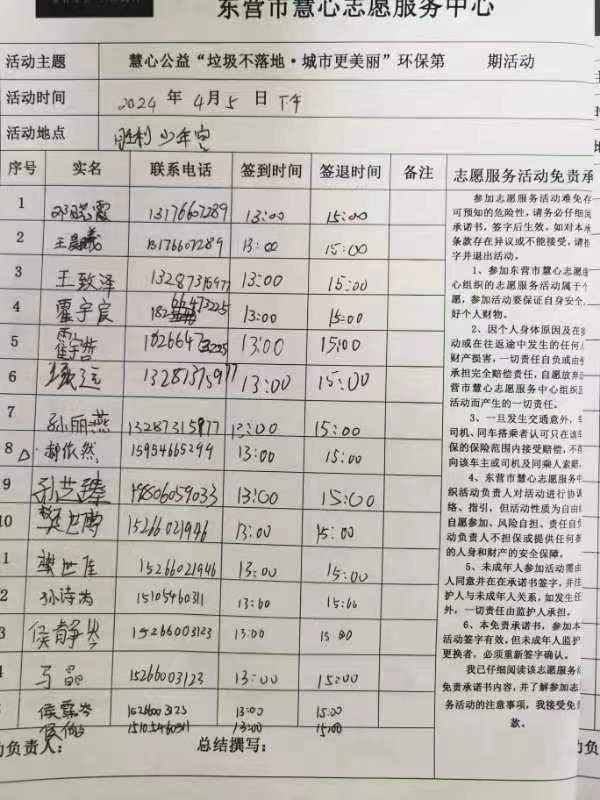 东营市慧心志愿服务中心
活动主题 慧心公益“垃圾不落地·城市更美丽”环保第 期活动
活动时间 2024年4月5日下午
活动地点 胜利少年宫
序号 实名 联系电话 签到时间 签退时间 备注 志愿服务活动免责承
1 邓晓霞 13176607289 13:00 15:00
2 王晨曦 13176607289 13:00 15:00
3 王致泽 13287315977 13:00 15:00
4 霍宇宸 13:00 15:00
5 霍宇哲 13:00 15:00
6 13287315977 13:00 15:00
7 孙丽燕 13287315977 13:00 15:00
8 郝依然 15954665299 13:00 15:00
9 孙艺臻 13:00 15:00
10 樊世博 15266021946 13:00 15:00
1 樊世佳 15266021946 13:00 15:00
2 孙诗 15105460311 13:00 15:00
3 侯静 15266003123 13:00 15:00
马晶 15266003123 13:00 15:00
侯霖 15266003123 13:00 15:00
侯 15105460311 13:00 15:00
动负责人： 总结撰写：
参加志愿服务活动难免存
可预知的危险性，请务必仔细阅
承诺书，签字后生效。如对本承
条款存在异议或不能接受，请拒
字并退出活动。
1、参加东营市慧心志愿服
心组织的志愿服务活动属于个
愿，参加活动要保证自身安全、
好个人财物。
2、因个人身体原因及在
动或在往返途中发生的任何人
财产损害，一切责任自负或由
承担完全赔偿责任，自愿放弃
营市慧心志愿服务中心组织因
活动而产生的一切责任。
3、一旦发生交通意外，车
司机、同车搭乘者认可只在该车
保的保险范围内接受赔偿，不得
向该车主或司机及同乘人索赔。
4、东营市慧心志愿服务中
织活动负责人对活动进行协调
络、指引，但活动性质为自由组
自愿参加、风险自担、责任自负
动负责人不担保或提供任何参
的人身和财产的安全保障。
5、未成年人参加活动需由
人同意并在在承诺书签字，并注
护人与未成年人关系，如发生任
外，一切责任由监护人承担。
6、本免责承诺书，参加本
活动签字有效，但未成年人监护
更换者，必须重新签字确认。
我已仔细阅读该志愿服务活
免责承诺书内容，并了解参加志
务活动的注意事项，我接受免责
款。